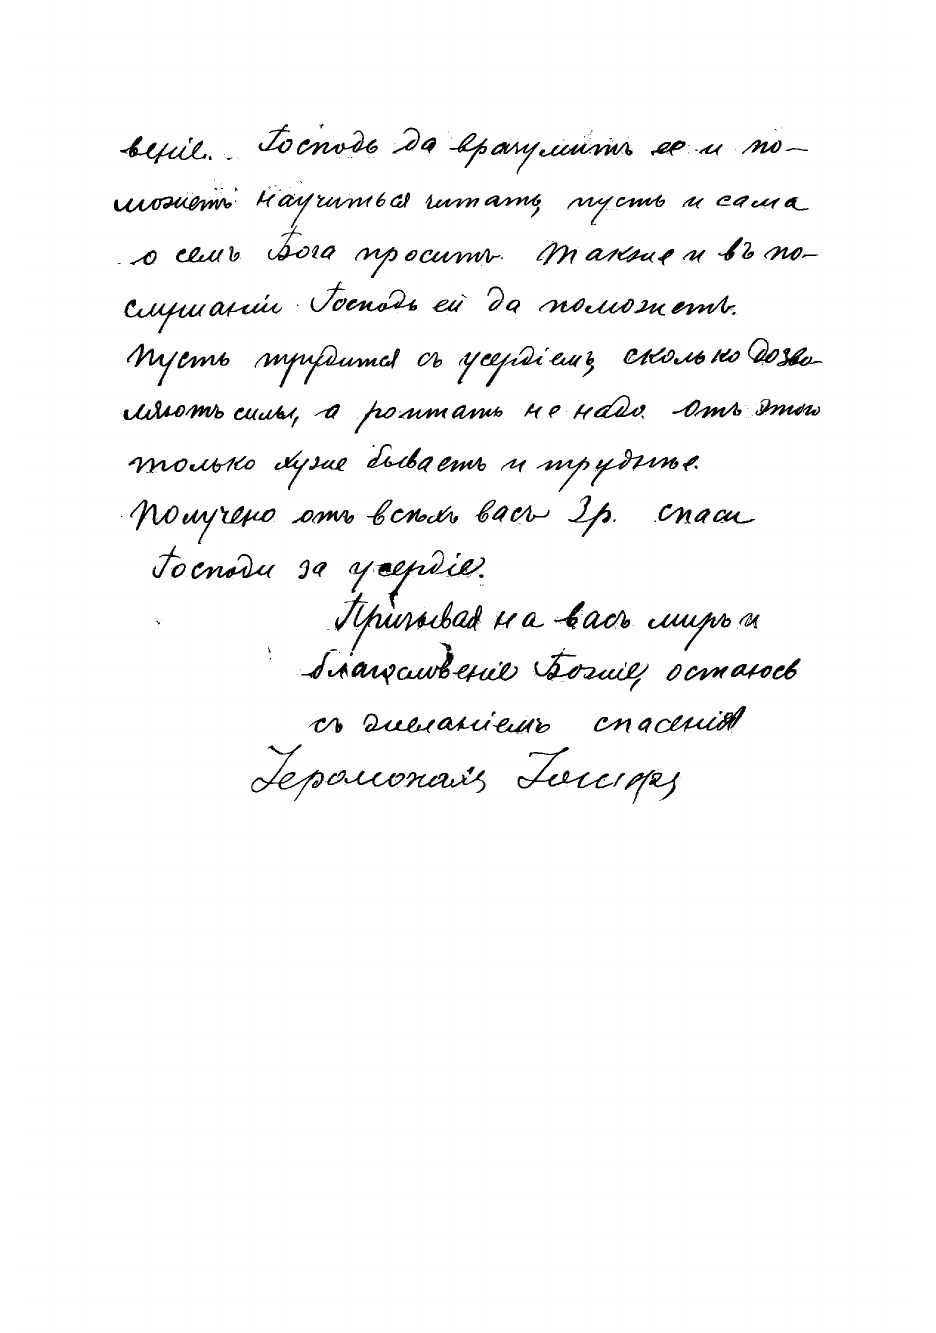 веніе. Господь да вразумитъ ее и по-
можетъ научиться читать, пусть и сама
о семъ Бога проситъ. Также и въ по-
слушаніи Господь ей да поможетъ.
Пусть трудится съ усердіемъ, сколько дозво-
ляютъ силы, а роптать не надо. Отъ этого
только хуже бываетъ и труднѣе.
Получено отъ всѣхъ васъ 3р. спаси
Господи за усердіе.
Призывая на васъ миръ и
благословеніе Божіе, остаюсь
съ желаніемъ спасенія
Іеромонахъ Іосифъ